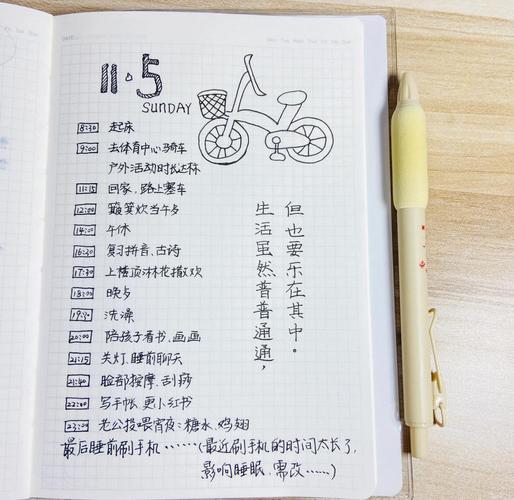 11.5
SUNDAY
8:30 起床
9:00 去体育中心骑车
户外活动时长达标
11:15 回家、路上塞车
12:00 簸箕炊当午歺
14:00 午休
16:30 复习拼音、古诗
17:30 上楼顶淋花撒欢
18:00 晚歺
19:30 洗澡
20:00 陪孩子看书、画画
21:15 关灯、睡前聊天
21:40 脸部按摩、刮痧
22:00 写手帐、更小红书
23:00 老公投喂宵夜:糖水、鸡翅
最后睡前刷手机……(最近刷手机的时间太长了,
影响睡眠、需改……)
生活虽然普普通通,
但也要乐在其中。